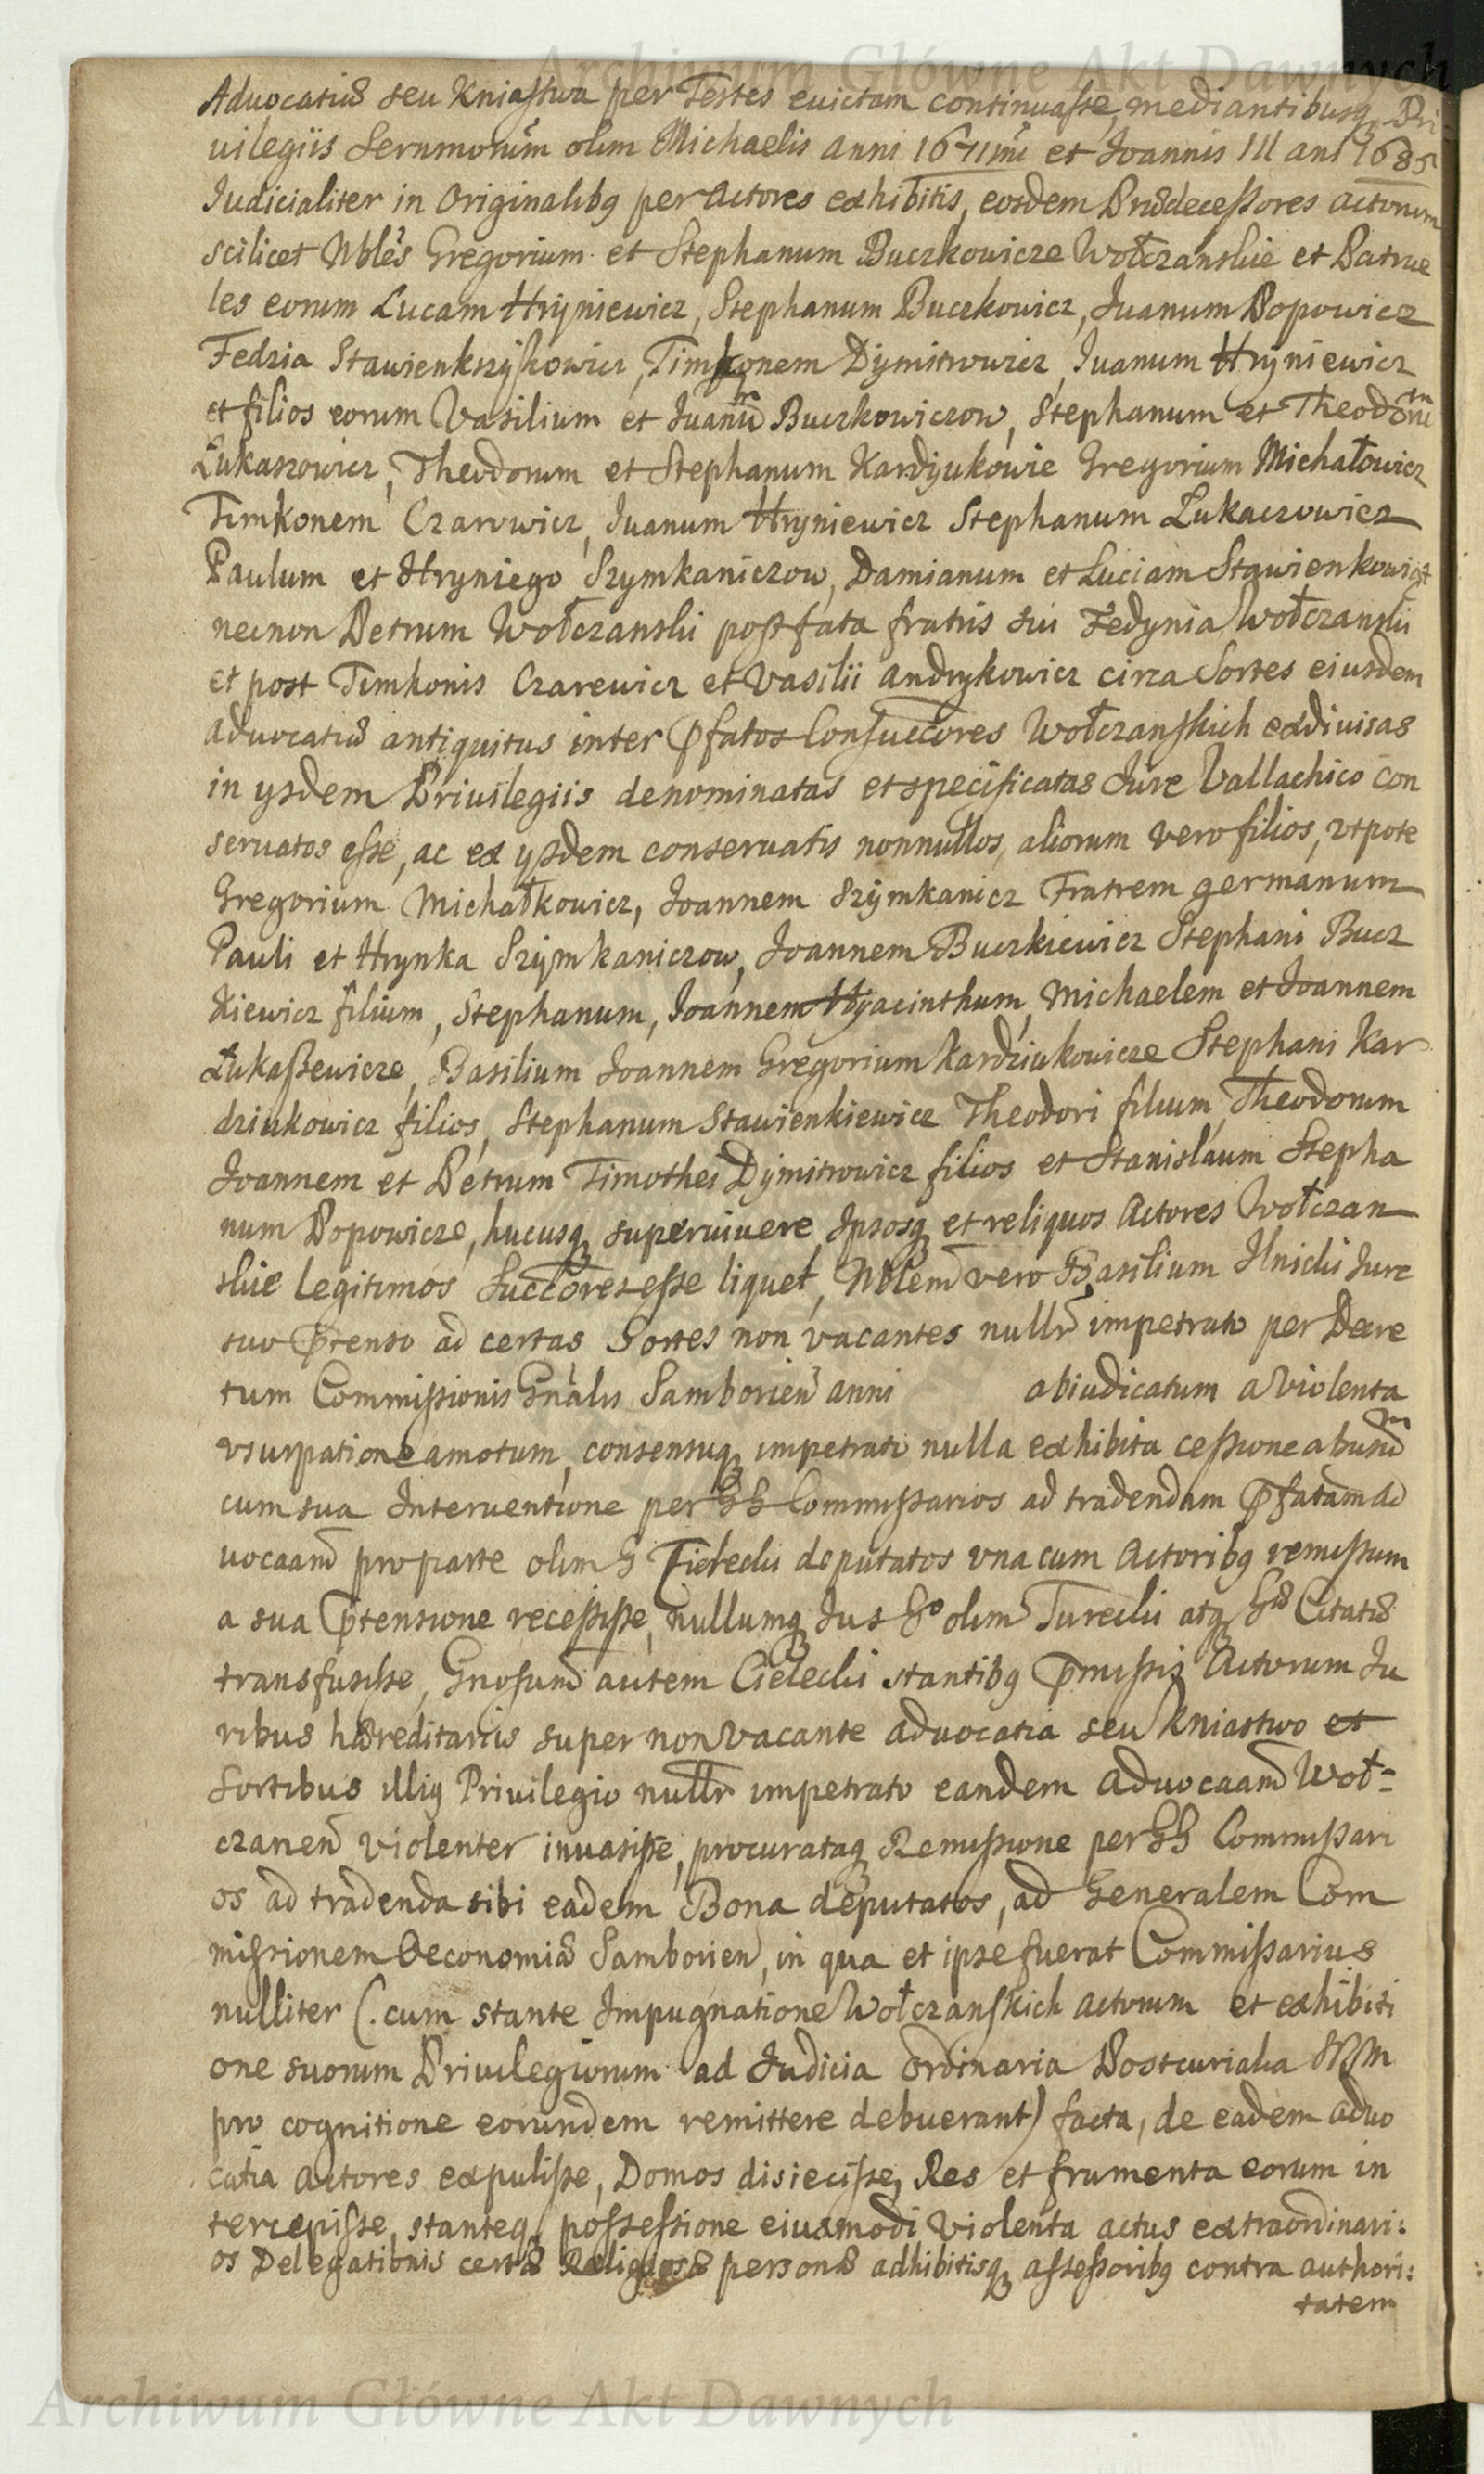 Archiwum Główne Akt Dawnych
Advocatiæ seu Kniastwa per Testes evictam continuasse, mediantibusq Pri
uilegiis Sernmorum olim Michaelis anni 1671mi et Joannis III ani 1685
Judicialiter in Originalibq per Actores exhibitis, eosdem Prædecessores actorum
scilicet Nbles Gregorium et Stephanum Buczkowicze Wołczanskie et Patrue
les eorum Lucam Hryniewicz, Stephanum Buczkowicz, Iuanum Popowicz
Fedzia Stawienkszyskowicz, Timkonem Dymitrowicz, Iuanum Hryniewicz
et filios eorum Vasilium et Iuanū Buczkowiczow, Stephanum et Theodorū
Łukaszowicz, Theodorum et Stephanum Kardyukowie Gregorium Michałowicz
Timkonem Czarowicz, Iuanum Hryniewicz Stephanum Łukaczowicz
Paulum et Hryniego Szymkaniczow, Damianum et Luciam Stawienkowicz
necnon Petrum Wołczanski post fata fratris sui Fedynia Wołczanski
et post Timkonis Czarewicz et Vasilii Andrykowicz circa Sortes eiusdem
aduocatiæ antiquitus inter p̄fatos Consuccores Wołczanskich exdiuisas
in ysdem Priuilegiis denominatas et specificatas Jure Vallachico con
seruatos esse, ac ex ysdem conseruatis nonnullos, aliorum vero filios, vtpote
Gregorium Michałkowicz, Joannem Szymkanicz Fratrem germanum
Pauli et Hrynka Szymkaniczow, Joannem Buczkiewicz Stephani Bucz
kiewicz filium, Stephanum, Joannem Hyacinthum, Michaelem et Joannem
Łukaszewicze, Basilium Joannem Gregorium Kardziukowicze Stephani Kar
dziukowicz filios, Stephanum Stawienkiewicz Theodori filium, Theodorum
Joannem et Petrum Timothei Dymitrowicz filios et Stanislaum Stepha
num Popowicze, hucusq superuiuere, Ipsosq et reliquos Actores Wołczan
skie legitimos Succores esse liquet, Nblem vero Basilium Ilnicki Jure
suo p̄tenso ad certas Sortes non vacantes nullr impetrato per Decre
tum Commissionis Gnalis Samborien anni abiudicatum a violenta
vsurpatione amotum, consensuq impetrati nulla exhibita cessione abusū
cum sua Interuentione per GG Commissarios ad tradendam p̄fatam ad
uocaam pro parte olim G Turecki deputatos vna cum Actoribq remissum
a sua p̄tensione recessisse, nullumq Jus Go olim Turecki atq Gæ Citatæ
transfusisse, Gnosum autem Cielecki stantibq p̄missis Actorum Ju
ribus hæreditariis super non vacante aduocatia seu Kniastwo et
Sortibus illiq Priuilegio nullr impetrato eandem aduocaam Woł=
czanen violenter inuasisse, procurataq Remissione per GG Commissari
os ad tradenda sibi eadem Bona deputatos, ad Generalem Com
missionem Oeconomiæ Samborien, in qua et ipse fuerat Commissarius
nulliter (.cum stante Impugnatione Wołczanskich actorum et exhibiti
one suorum Priuilegiorum ad Judicia Ordinaria Postcurialia SRM
pro cognitione eorundem remittere debuerant) facta, de eadem aduo
catia Actores expulisse, Domos disiecisse, Res et frumenta eorum in
tercepisse, stanteq possessione eiusmodi violenta actus extraordinari:
os Delegationis certæ Religiosæ personæ adhibitisq assessoribq contra authori:
tatem
Archiwum Główne Akt Dawnych